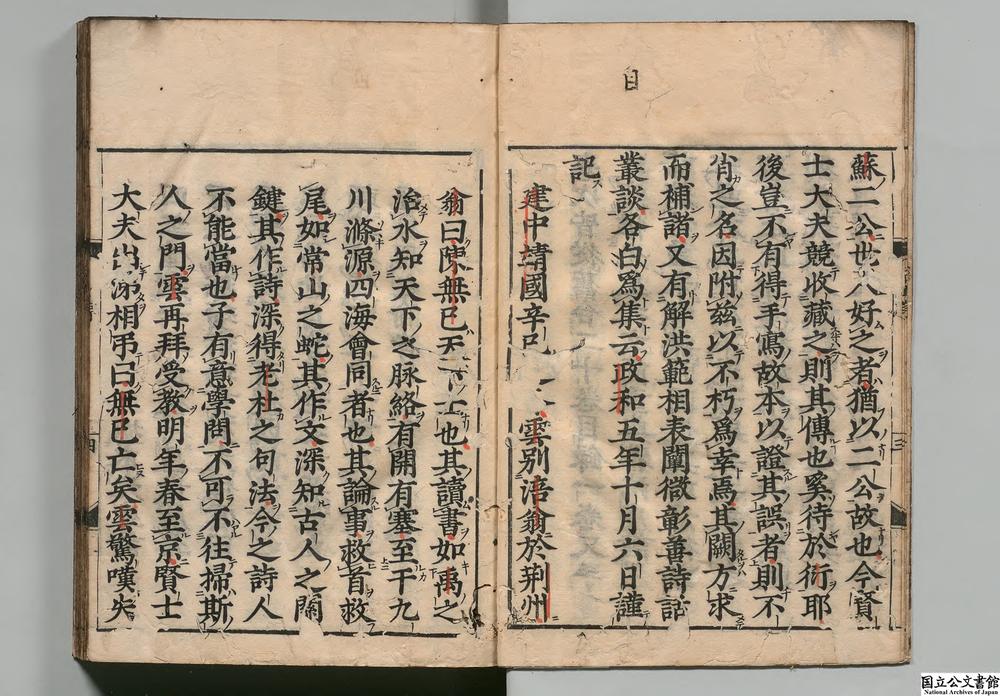 日
蘇二公世人好之者猶以二公故也今賢
士大夫競收藏之則其傳也奚待於衍耶
後豈不有得手寫故本以證其誤者則不
肖之名因附茲以不朽爲幸焉其闕方求
而補諸又有解洪範相表闡微彰善詩話
叢談各自爲集云政和五年十月六日謹
記
建中靖國辛巳 雲別涪翁於荆州
翁曰陳無巳天下士也其讀書如禹之
治水知天下之脉絡有開有塞至于九
川滌源四海會同者也其論事救首救
尾如常山之蛇其作文深知古人之關
鍵其作詩深得老杜之句法今之詩人
不能當也子有意學問不可不往掃斯
人之門雲再拜受教明年春至京賢士
大夫出 相弔曰無巳亡矣雲驚嘆失
三
四
国立公文書館
National Archives of Japan